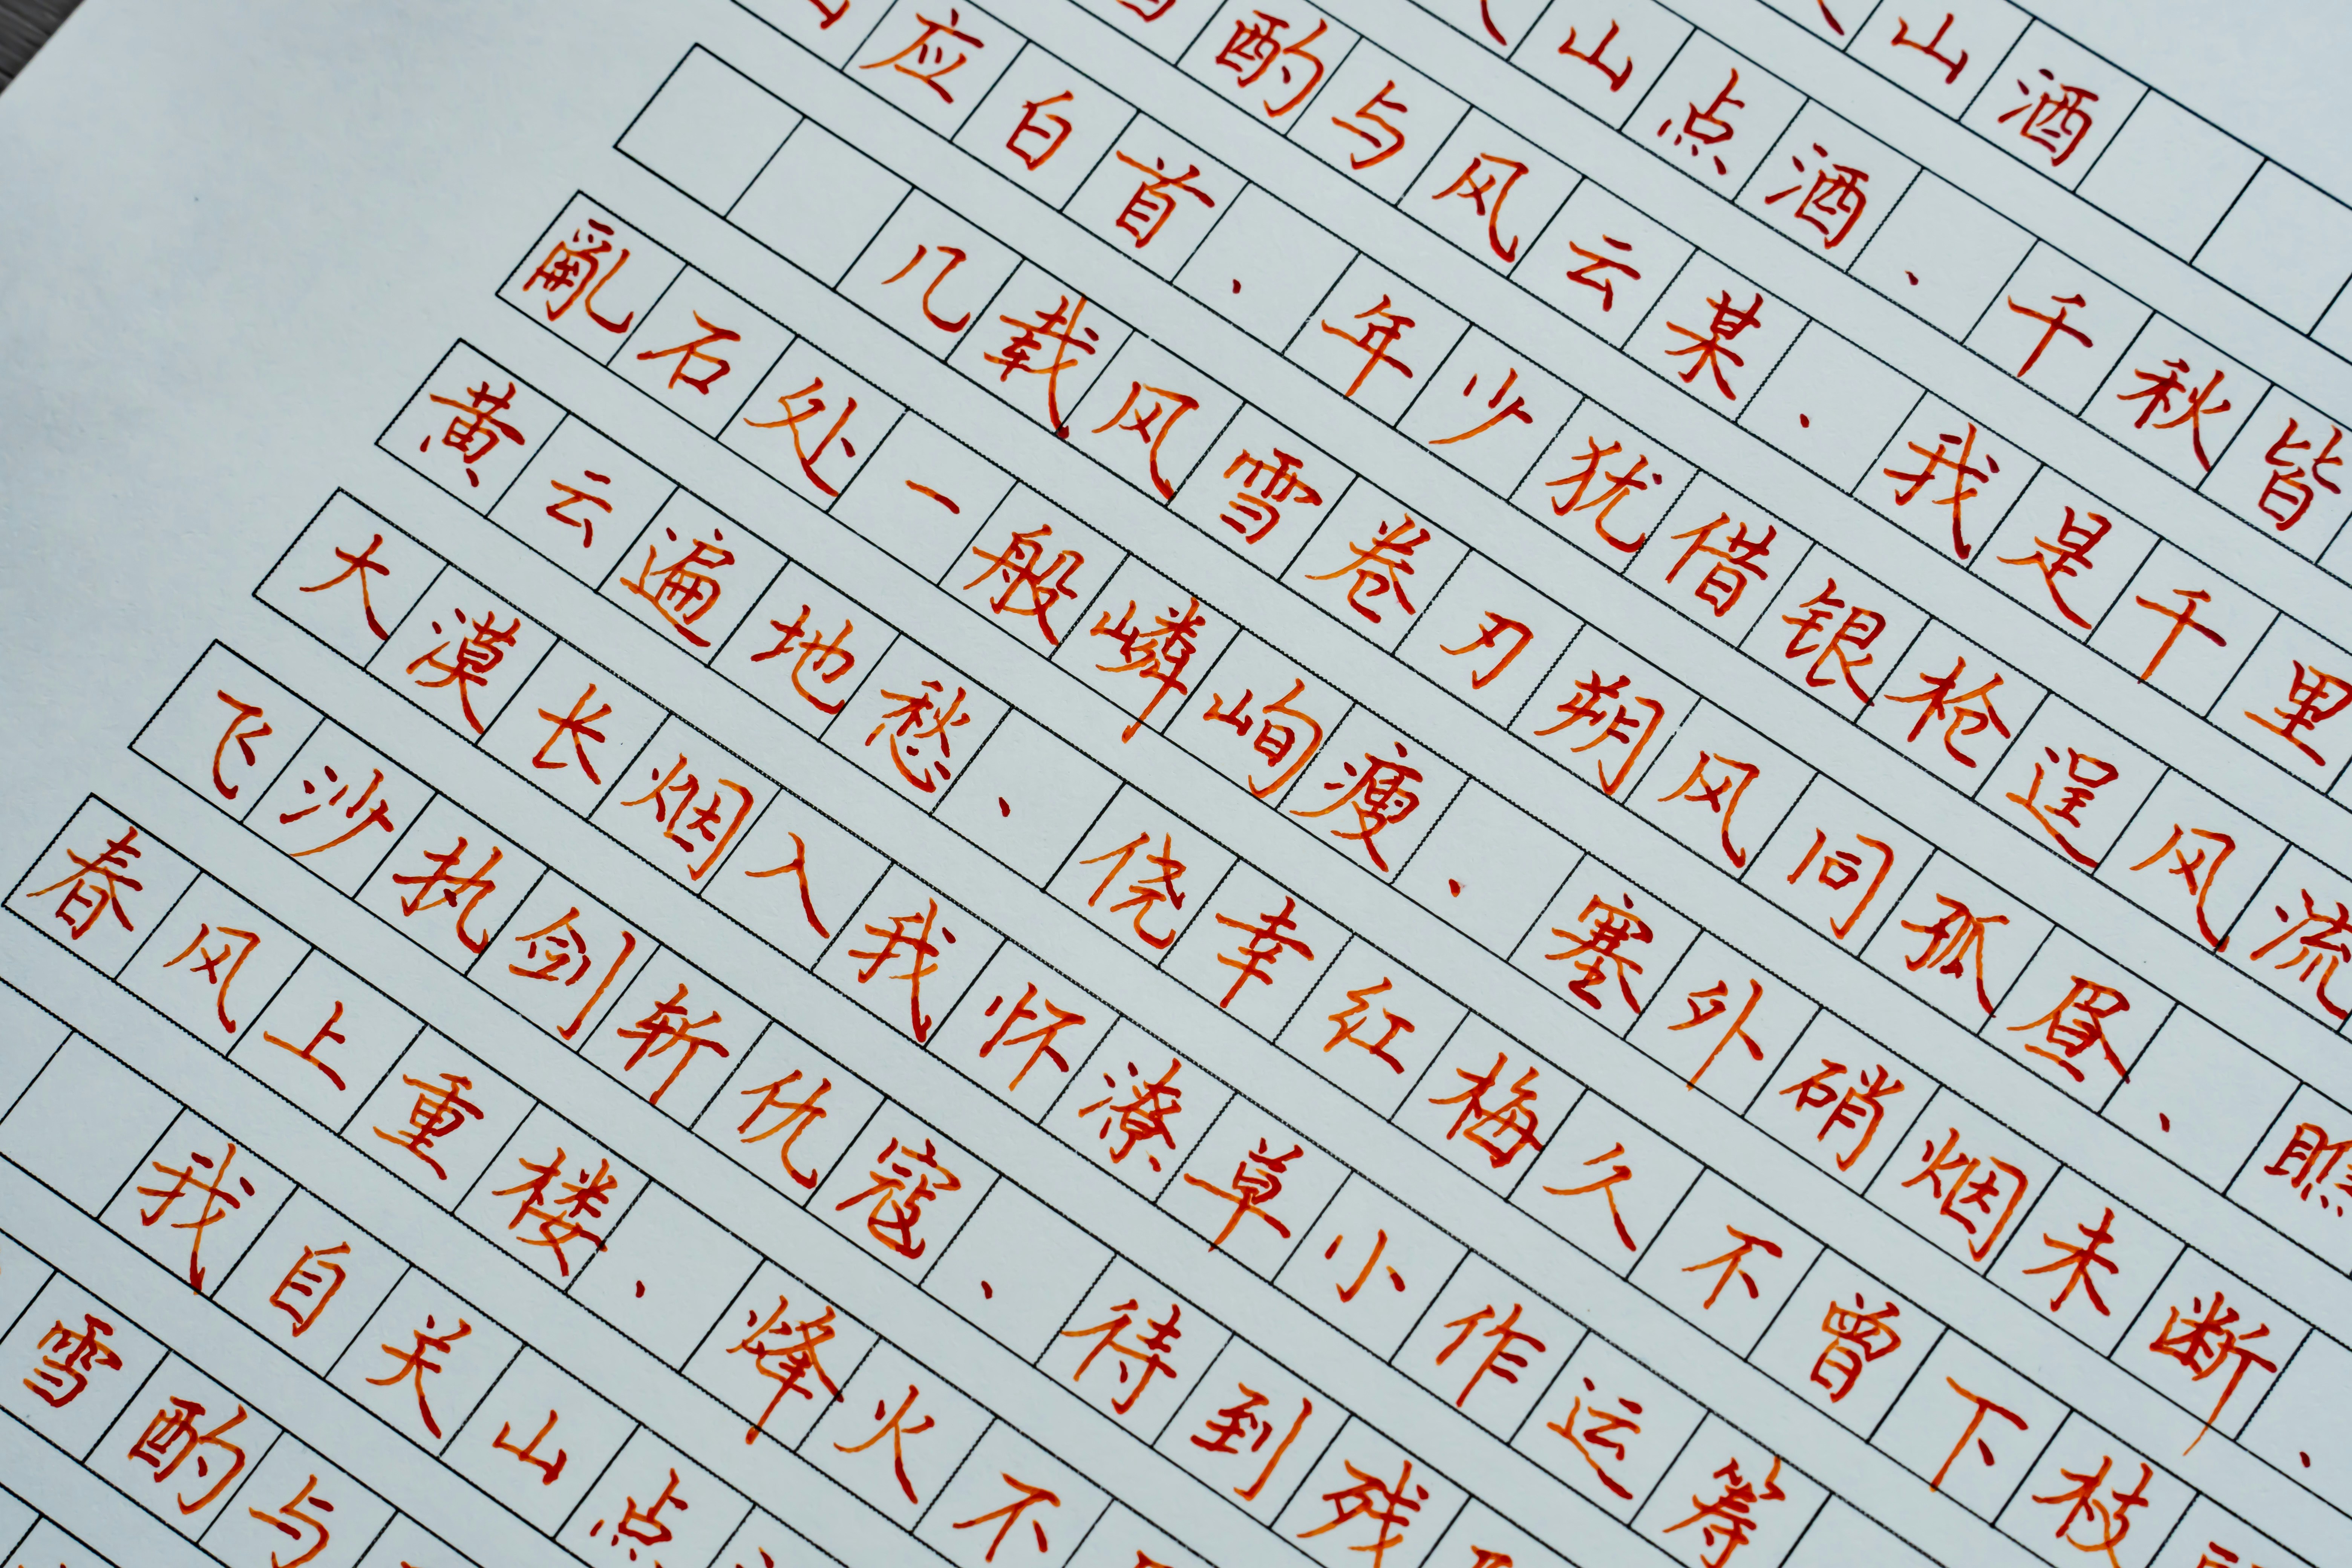 山酒
山点酒、千秋皆
酌与风云某、我是千里
山应白首、年少犹借银枪逞风流
几载风雪卷刃朔风同孤昼、瞧
亂石处一般嶙峋瘦、塞外硝烟未断、
黄云遍地愁、侥幸红梅久不曾下枝
大漠长烟入我怀潦草小作运筹
飞沙执剑斩仇寇、待到残
春风上重楼、烽火不
我自关山点
雪酌与